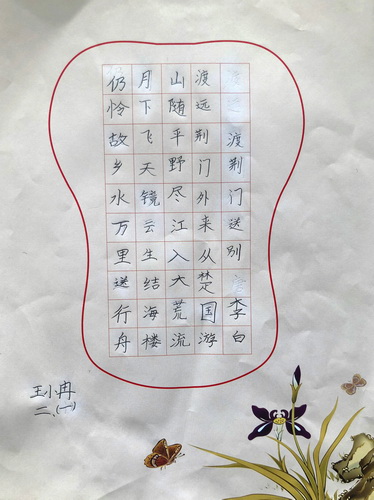 渡荆门送别 李白
渡远荆门外来从楚国游
山随平野尽江入大荒流
月下飞天镜云生结海楼
仍怜故乡水万里送行舟
王小冉
二.(一)